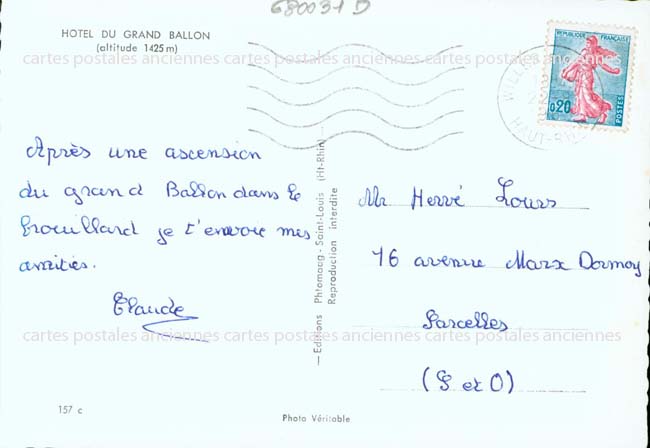 680031 D
HOTEL DU GRAND BALLON
(altitude 1425 m)
REPUBLIQUE FRANCAISE
0,20
POSTES
HAUT-RHIN
cartes postales anciennes cartes postales anciennes cartes postales anciennes
Après une ascension
du grand Ballon dans le
brouillard je t'envoie mes
amitiés.
Claude
Mr Hervé Lours
76 avenue Marx Dormoy
Sarcelles
(S et O)
— Editions Phtomacg - Saint-Louis (Ht-Rhin) —
Reproduction interdite
cartes postales anciennes cartes postales anciennes cartes postales anciennes
157 c
Photo Véritable